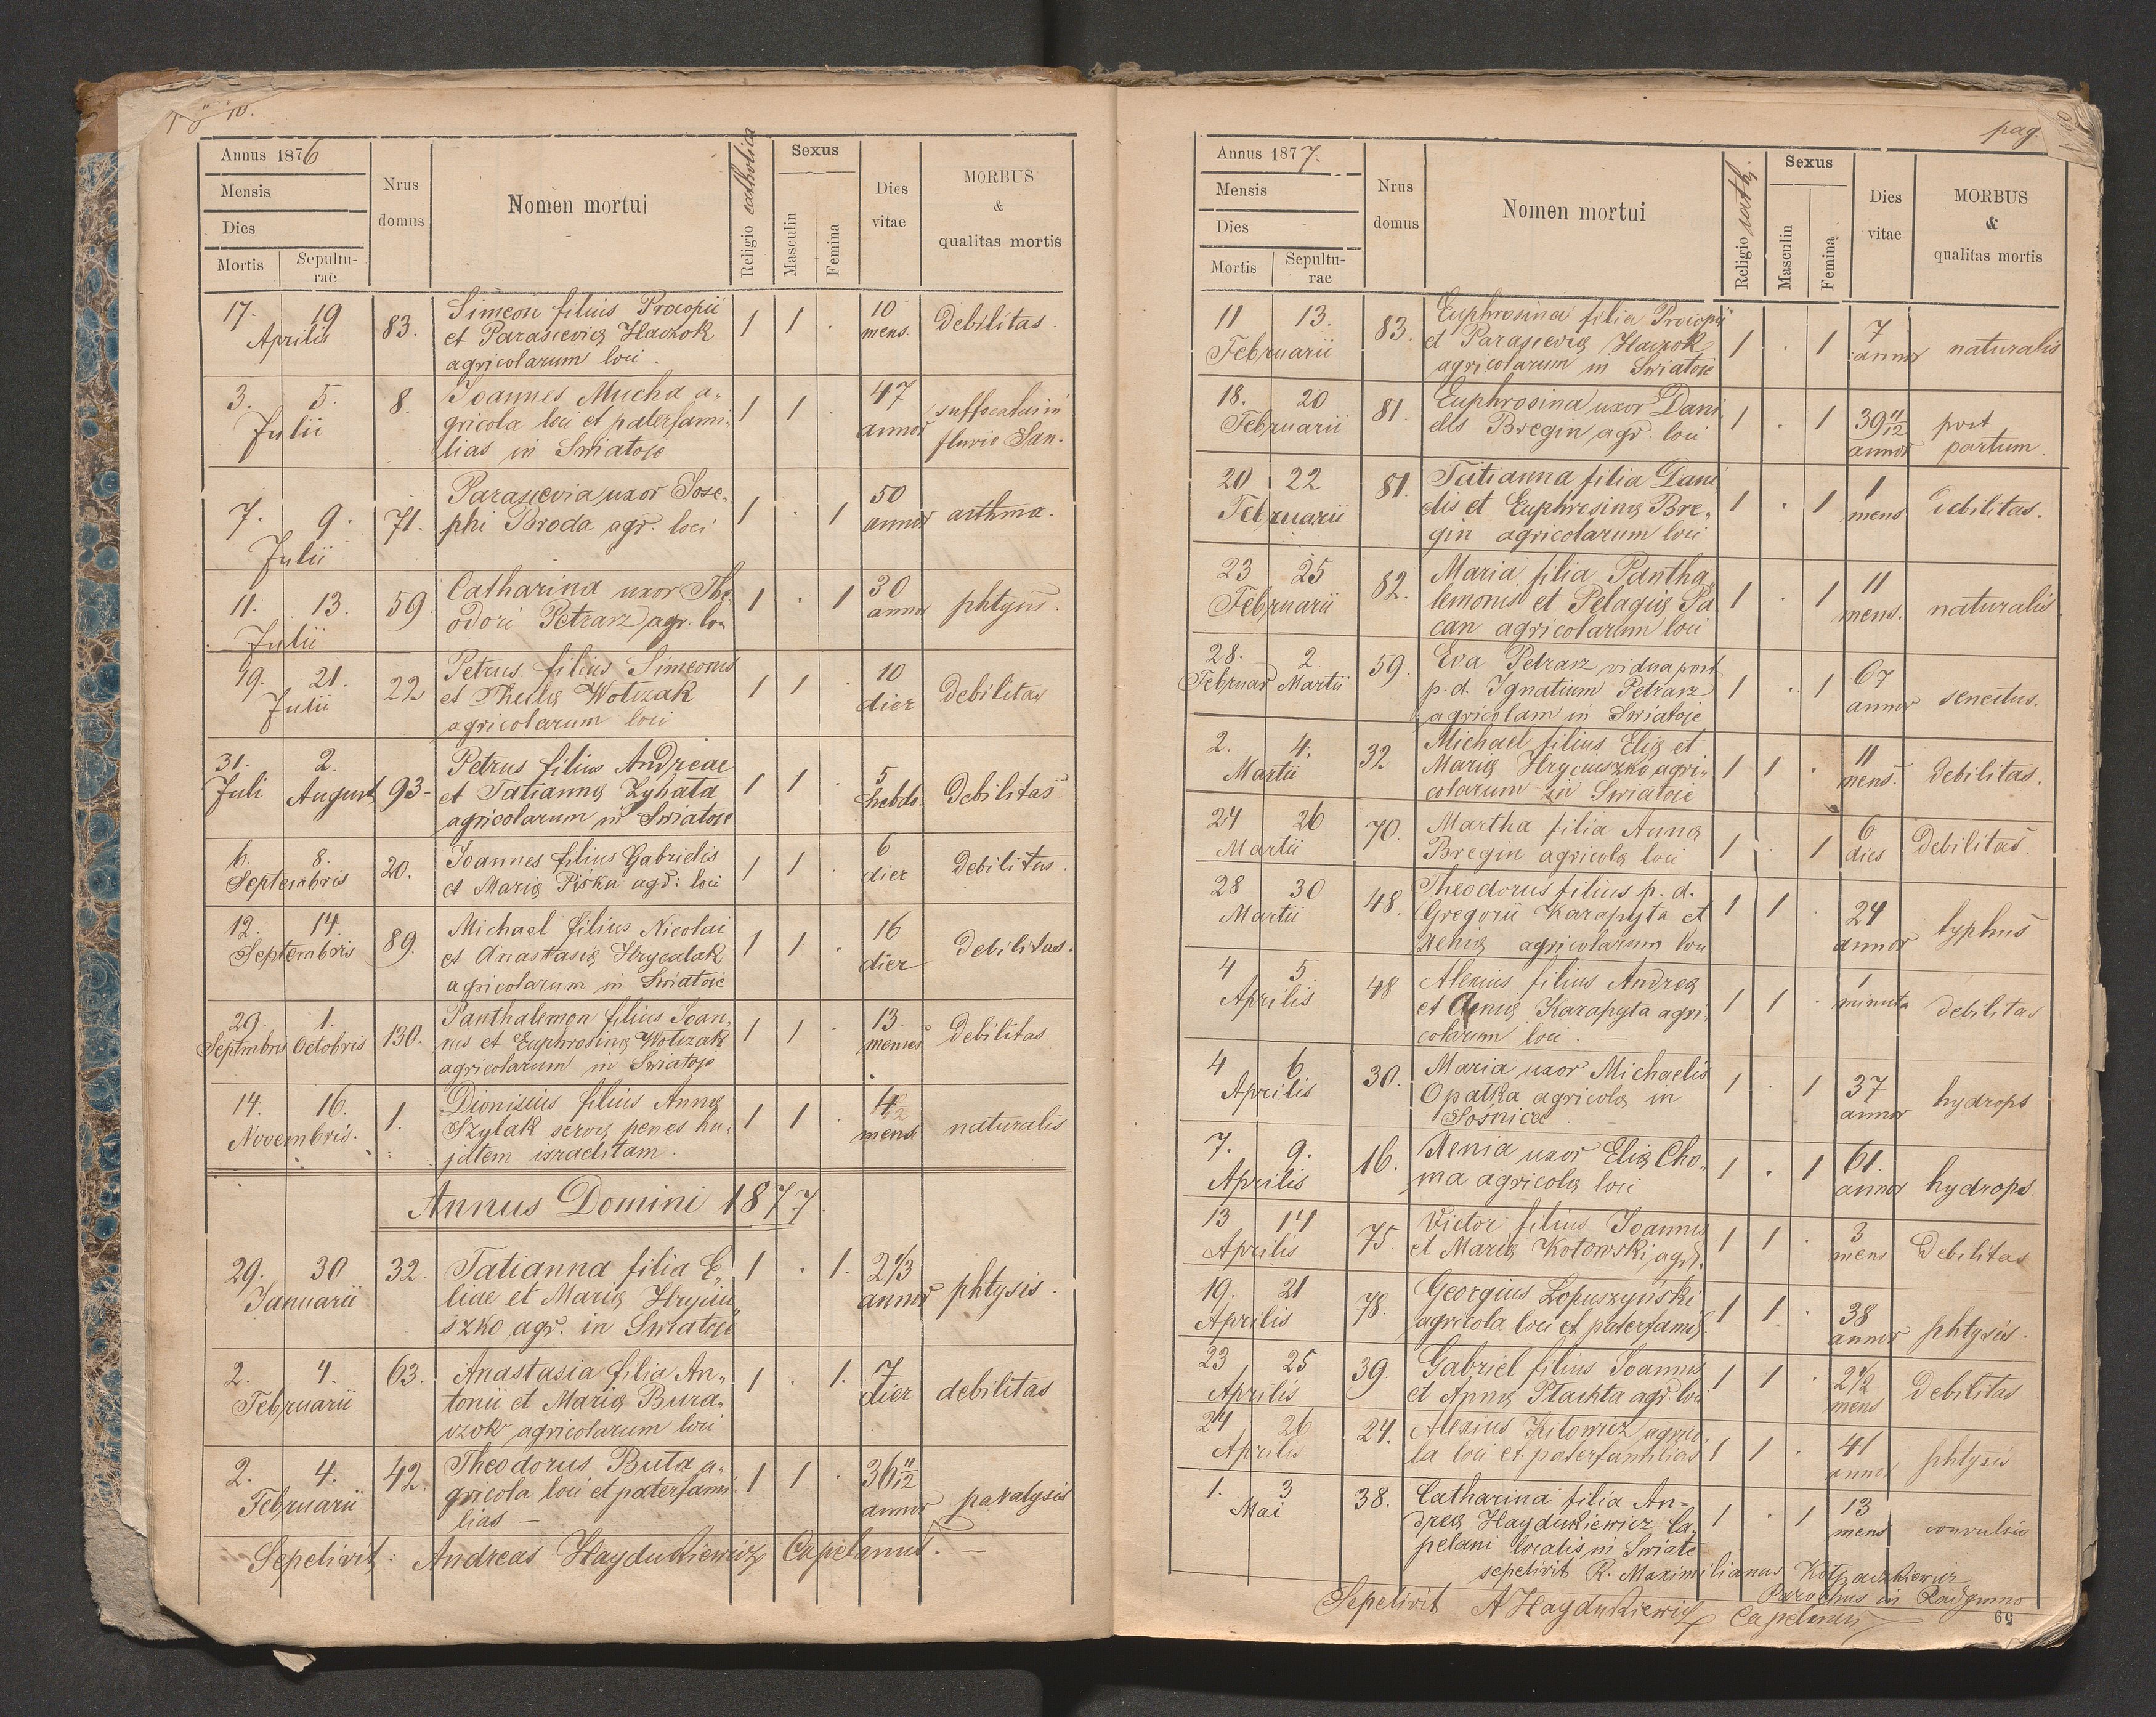 Annus 1876
Mensis
Dies
Mortis
Sepultu-
rae
Nrus
domus
Nomen mortui
Religio catholica
Sexus
Masculin
Femina
Dies
vitae
MORBUS
&
qualitas mortis
17. 19 83. Simeon filius Procopii 1 1 . 10 Debilitas.
Aprilis et Parascevię Haczok mens.
agricolarum loci.
3. 5. 8. Joannes Mucha a„ 1 1 . 47 suffocatus in
Julii gricola loci et paterfami„ annor fluvio San.
lias in Swiatoje
7. 9. 71. Parascevia uxor Jose„ 1 . 1 50 asthma.
Julii phi Broda agr. loci annor
11. 13. 59. Catharina uxor The„ 1 . 1 30 phtysis.
Julii odori Petrarz agr. loci annor
19. 21. 22 Petrus filius Simeonis 1 1 . 10 Debilitas
Julii et Theclę Wolczak dier
agricolarum loci
31. 2. 93- Petrus filius Andreae 1 1 . 5 Debilitas
Juli August et Tatiannę Zyhata hebdo.
agricolarum in Swiatoje
6. 8. 20. Joannes filius Gabrielis 1 1 . 6 Debilitas.
Septembris et Marię Piska agr: loci dier
12. 14. 89. Michael filius Nicolai 1 1 . 16 Debilitas.
Septembris et Anastasię Hrycalak dier
agricolarum in Swiatoje
29. 1. 130. Panthalemon filius Joan„ 1 1 . 13. Debilitas
Septmbris Octobris nis et Euphrosinę Wolczak menses
agricolarum in Swiatoje
14. 16. 1. Dionisius filius Annę 1 1 . 4½ naturalis
Novembris. Szylak servę penes hu„ mens
jatem israelitam.
Annus Domini 1877.
29. 30 32. Tatianna filia E„ 1 . 1. 2⅓ phtysis.
Januarii liae et Marię Hryciu„ annor
szko agr. in Swiatoje
2. 4. 63. Anastasia filia An„ 1 . 1. 7 debilitas
Februarii tonii et Marię Bura„ dier
czok agricolarum loci
2. 4. 42. Theodorus Buta a„ 1 1 . 36 11/12 paralysis
Februarii gricola loci et paterfami„ annor
lias —
Sepelivit: Andreas Haydukiewicz Capelanus. —
pag.
Annus 1877.
Mensis
Dies
Mortis
Sepultu-
rae
Nrus
domus
Nomen mortui
Religio cath.
Sexus
Masculin
Femina
Dies
vitae
MORBUS
&
qualitas mortis
11 13. 83. Euphrosina filia Procopii 1 . 1 7 naturalis
Februarii et Parascevię Haczok annor
agricolarum in Swiatoje
18. 20 81. Euphrosina uxor Dani„ 1 . 1 39 11/12 post
Februarii elis Bregin agr. loci annor partum.
20 22 81. Tatianna filia Dani„ 1 . 1 1 Debilitas.
Februarii elis et Euphrosinę Bre„ mens
gin agricolarum loci
23 25 82. Maria filia Pantha„ 1 . 1 11 naturalis.
Februarii lemonis et Pelagię Pa mens.
can agricolarum loci
28. 2. 59. Eva Petrarz vidua post 1 . 1 67 senectus.
Februar Martii p. d. Ignatium Petrarz annor
agricolam in Swiatoje
2. 4. 32 Michael filius Elię et 1 1 . 11 Debilitas.
Martii Marię Hryciuszko agri„ mens.
colarum in Swiatoje
24 26 70. Martha filia Annę 1 . 1 6 Debilitas.
Martii Bregin agricolę loci dies
28 30 48. Theodorus filius p. d. 1 1 . 24 typhus
Martii Gregorii Karapyta et annor
Xenię agricolarum loci
4 5. 48 Alexius filius Andreę 1 1 . 1 debilitas
Aprilis et Annę Karapyta agri„ minuta
colarum loci. —
4 6. 30. Maria uxor Michaelis 1 . 1 37 hydrops
Aprilis Opalka agricolę in annor
Sosnica
7. 9. 16. Xenia uxor Elię Cho„ 1 . 1 61. hydrops.
Aprilis ma agricolę loci annor
13 14 75. Victor filius Joannis 1 1 . 3 Debilitas
Aprilis et Marię Kotowski agr. mens
19. 21 78. Georgius Łopuszyński 1 1 . 38 phtysis.
Aprilis agricola loci et paterfamil. annor
23 25 39. Gabriel filius Joannis 1 1 . 2½ Debilitas
Aprilis et Annę Ptachta agr. loci mens
24 26 24. Alexius Kitowicz agrico„ 1 1 . 41 phtysis
Aprilis la loci et paterfamilias annor
1. 3 38. Catharina filia An= 1 . 1 13 convulsio
Mai dreę Haydukiewicz Ca„ mens
pelani localis in Swiate
sepelivit R. Maximilianus
Parochus in Radymno
Sepelivit A Haydukiewicz Capelanus
59